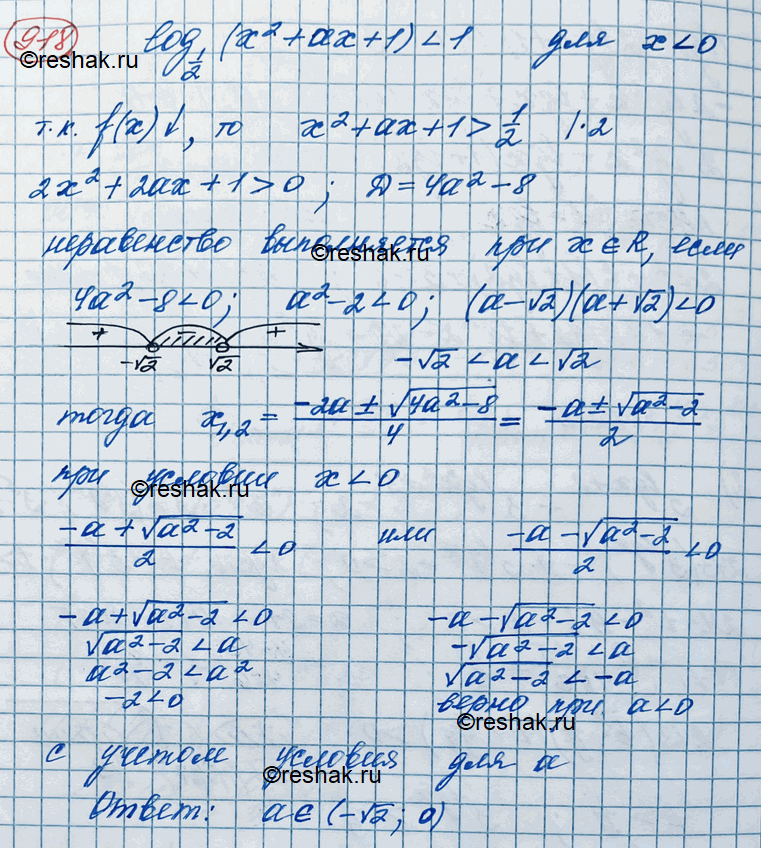 918 log_{1/2} (x² + ax + 1) < 1 для x < 0
©reshak.ru ©reshak.ru
т.к. f(x)↓, то x² + ax + 1 > 1/2 |·2
2x² + 2ax + 1 > 0 ; Д = 4a² - 8
неравенство выполняется при x ∈ R, если
©reshak.ru
4a² - 8 < 0; a² - 2 < 0; (a - √2)(a + √2) < 0
+ − +
-√2 √2 -√2 < a < √2
тогда x_{1,2} = (-2a ± √(4a² - 8))/4 = (-a ± √(a² - 2))/2
при условии x < 0
©reshak.ru
(-a + √(a² - 2))/2 < 0 или (-a - √(a² - 2))/2 < 0
-a + √(a² - 2) < 0 -a - √(a² - 2) < 0
√(a² - 2) < a -√(a² - 2) < a
a² - 2 < a² √(a² - 2) < -a
-2 < 0 верно при a < 0
©reshak.ru
с учетом условия для a
©reshak.ru
Ответ: a ∈ (-√2; 0)